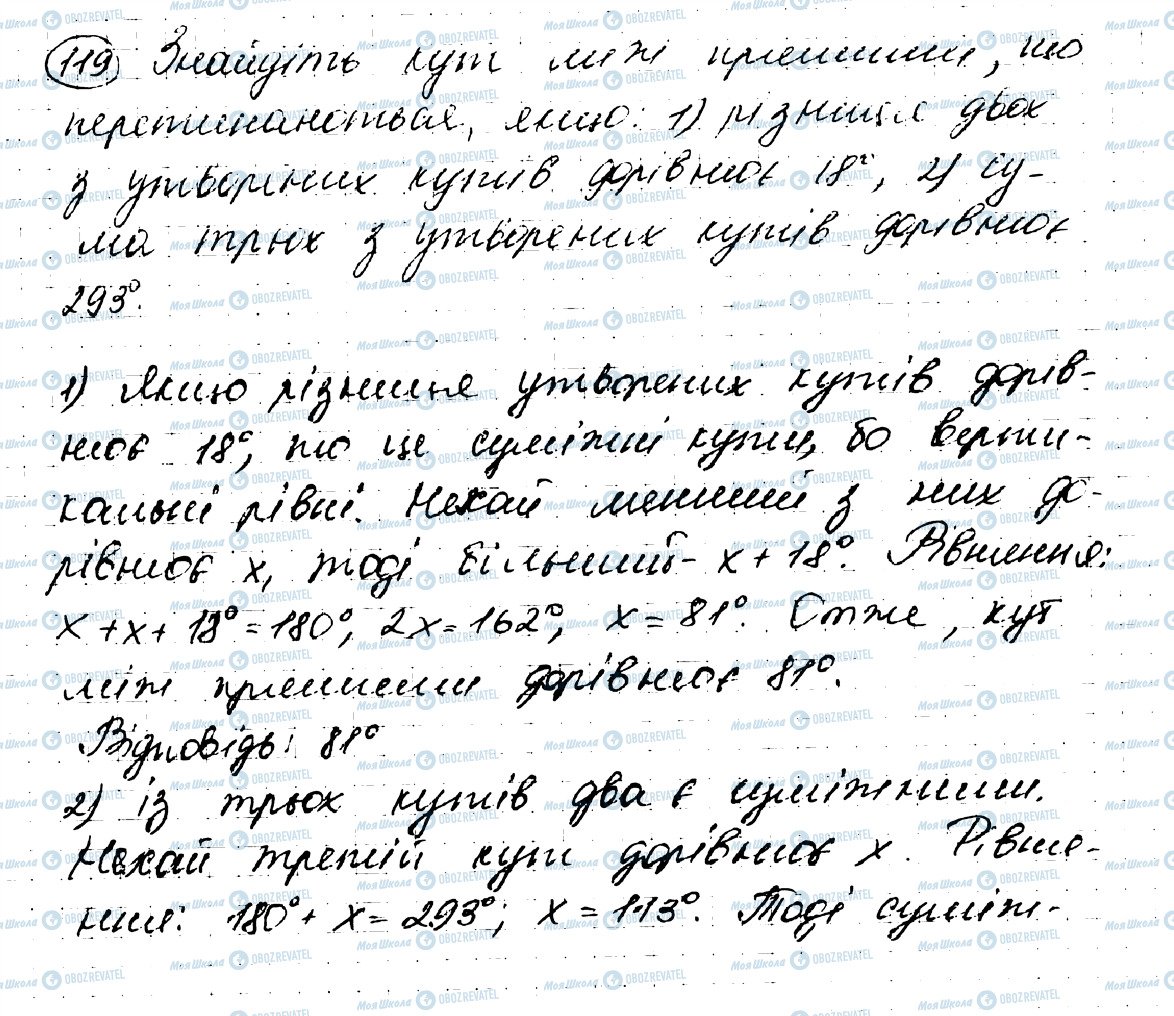 119 Знайдіть кут між прямими, що
перетинаються, якщо: 1) різниця двох
з утворених кутів дорівнює 18°, 2) су-
ма трьох з утворених кутів дорівнює
293°.
1) Якщо різниця утворених кутів дорів-
нює 18°, то це суміжні кути, бо верти-
кальні рівні. Нехай менший з них до-
рівнює x, тоді більший - x + 18°. Рівняння:
x + x + 18° = 180°; 2x = 162°; x = 81°. Отже, кут
між прямими дорівнює 81°.
Відповідь: 81°
2) із трьох кутів два є суміжними.
Нехай третій кут дорівнює x. Рівня-
ння: 180° + x = 293°; x = 113°. Тоді суміж-
МояШкола OBOZREVATEL